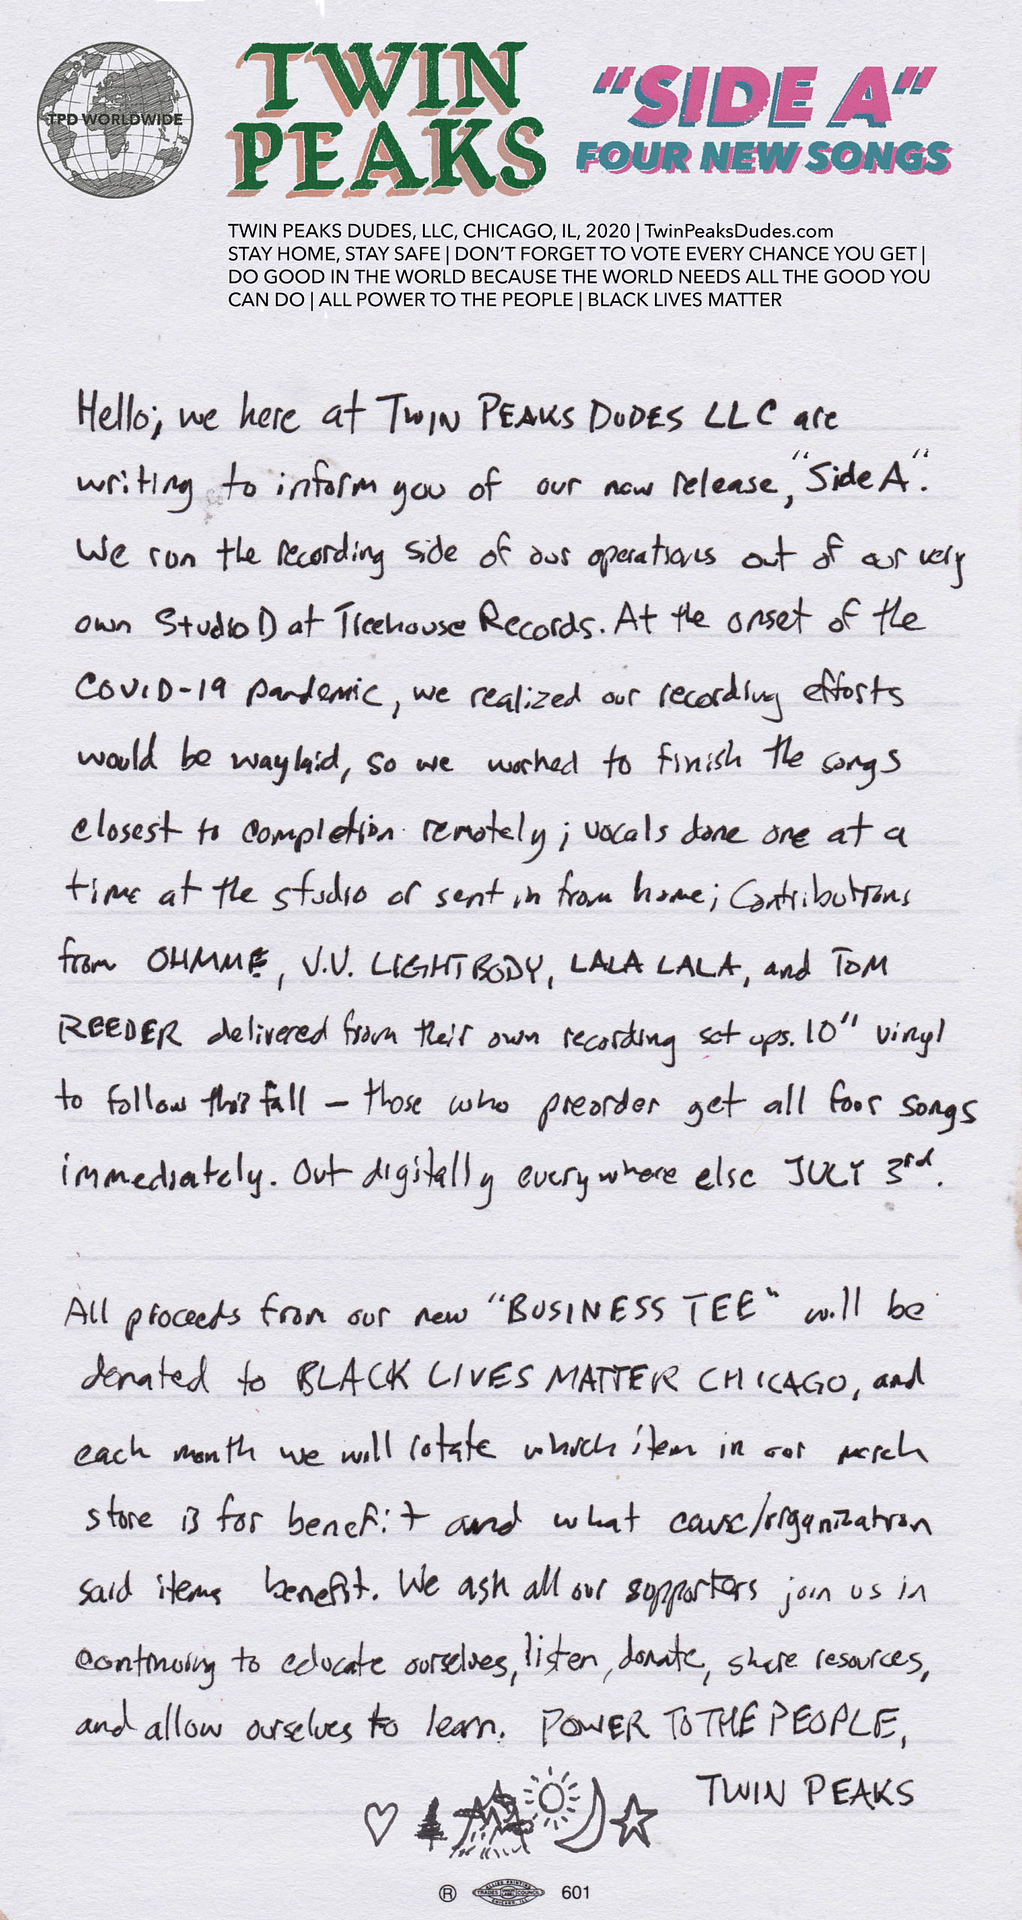 TPD WORLDWIDE
TWIN
PEAKS
"SIDE A"
FOUR NEW SONGS
TWIN PEAKS DUDES, LLC, CHICAGO, IL, 2020 | TwinPeaksDudes.com
STAY HOME, STAY SAFE | DON'T FORGET TO VOTE EVERY CHANCE YOU GET |
DO GOOD IN THE WORLD BECAUSE THE WORLD NEEDS ALL THE GOOD YOU
CAN DO | ALL POWER TO THE PEOPLE | BLACK LIVES MATTER
Hello; we here at TWIN PEAKS DUDES LLC are
writing to inform you of our new release, "Side A".
We run the recording side of our operations out of our very
own Studio D at Treehouse Records. At the onset of the
COVID-19 pandemic, we realized our recording efforts
would be waylaid, so we worked to finish the songs
closest to completion remotely; vocals done one at a
time at the studio or sent in from home; Contributions
from OHMME, V.V. LIGHTBODY, LALA LALA, and TOM
REEDER delivered from their own recording set ups. 10" vinyl
to follow this fall - those who preorder get all four songs
immediately. Out digitally everywhere else JULY 3rd.
All proceeds from our new "BUSINESS TEE" will be
donated to BLACK LIVES MATTER CHICAGO, and
each month we will rotate which item in our merch
store is for benefit and what cause/organization
said items benefit. We ask all our supporters join us in
continuing to educate ourselves, listen, donate, share resources,
and allow ourselves to learn. POWER TO THE PEOPLE,
TWIN PEAKS
® ALLIED PRINTING TRADES COUNCIL CHICAGO, ILL. 601